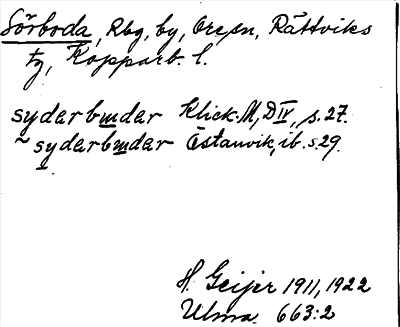 Sörboda, Rbg, by, Oresn, Rättviks
tg, Kopparb. l.
syderbudar Klick: M, D IV, s. 27.
~ syderbudar Östanvik, ib. s. 29.
H. Geijer 1911, 1922
Ulma 663:2